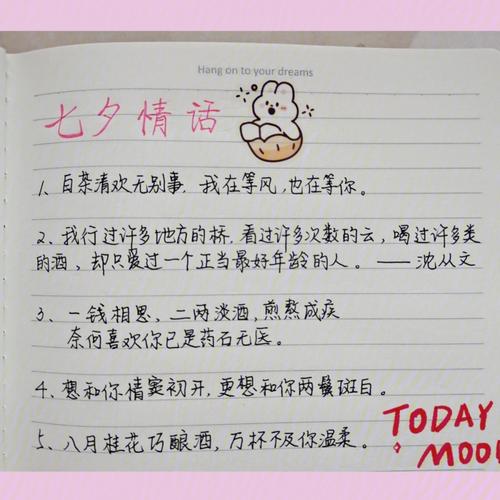 Hang on to your dreams
七夕情话
1、白茶清欢无别事，我在等风，也在等你。
2、我行过许多地方的桥，看过许多次数的云，喝过许多类
的酒，却只爱过一个正当最好年龄的人。——沈从文
3、一钱相思，二两淡酒，煎熬成疾
奈何喜欢你已是药石无医。
4、想和你情窦初开，更想和你两鬓斑白。
5、八月桂花巧酿酒，万杯不及你温柔。
TODAY
MOO